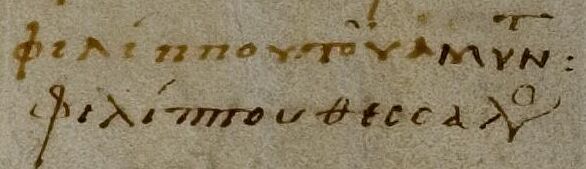 φιλίππου τοῦ ἀμύν⸆:
φιλίππου θεσσαλο